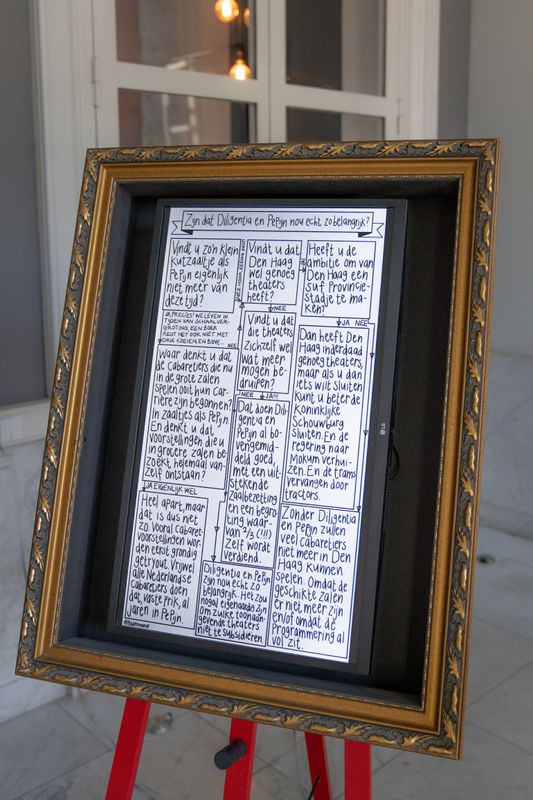 Zijn dat Diligentia en Pepijn nou echt zo belangrijk?
Vindt u zo'n klein
kutzaaltje als
Pepijn eigenlijk
niet meer van
deze tijd?
JA, PRECIES! WE LEVEN IN
TIJDEN VAN SCHAALVER-
GROTING, EEN BOER
REDT HET OOK NIET MET
DRIE KOEIEN EN BOVE..
NEE
Waar denkt u dat
de cabaretiers die nu
in de grote zalen
spelen ooit hun car-
rière zijn begonnen?
In zaaltjes als Pepijn.
En denkt u dat
voorstellingen die u
in grotere zalen be-
zoekt, helemaal van-
zelf ontstaan?
JA EIGENLIJK WEL
Heel apart, maar
dat is dus niet
zo. Vooral cabaret-
voorstellingen wor-
den eerst grondig
getryout. Vrijwel
alle Nederlandse
cabaretiers doen
dat, vaste prik, al
jaren in Pepijn.
Vindt u dat
Den Haag
wel genoeg
theaters
heeft?
NEE
Vindt u dat
die theaters
zichzelf wel
wat meer
mogen be-
druipen?
NEE JA!!!
Dat doen Dili-
gentia en
Pepijn al bo-
vengemid-
deld goed,
met een uit-
stekende
zaalbezetting
en een begro-
ting waar-
van 2/3 (!!!)
zelf wordt
verdiend.
Diligentia en Pepijn
zijn nou echt zo
belangrijk. Het zou
nogal eigenaardig zijn
om zulke toonaan-
gevende theaters
niet te subsidiëren.
Heeft u de
ambitie om van
Den Haag een
suf provincie-
stadje te ma-
ken?
JA NEE
Dan heeft Den
Haag inderdaad
genoeg theaters,
maar als u dan
iets wilt sluiten
kunt u beter de
Koninklijke
Schouwburg
sluiten. En de
regering naar
Mokum verhui-
zen. En de trams
vervangen door
tractors.
Zonder Diligentia
en Pepijn zullen
veel cabaretiers
niet meer in Den
Haag kunnen
spelen. Omdat de
geschikte zalen
er niet meer zijn
en/of omdat de
programmering al
vol zit.
LG